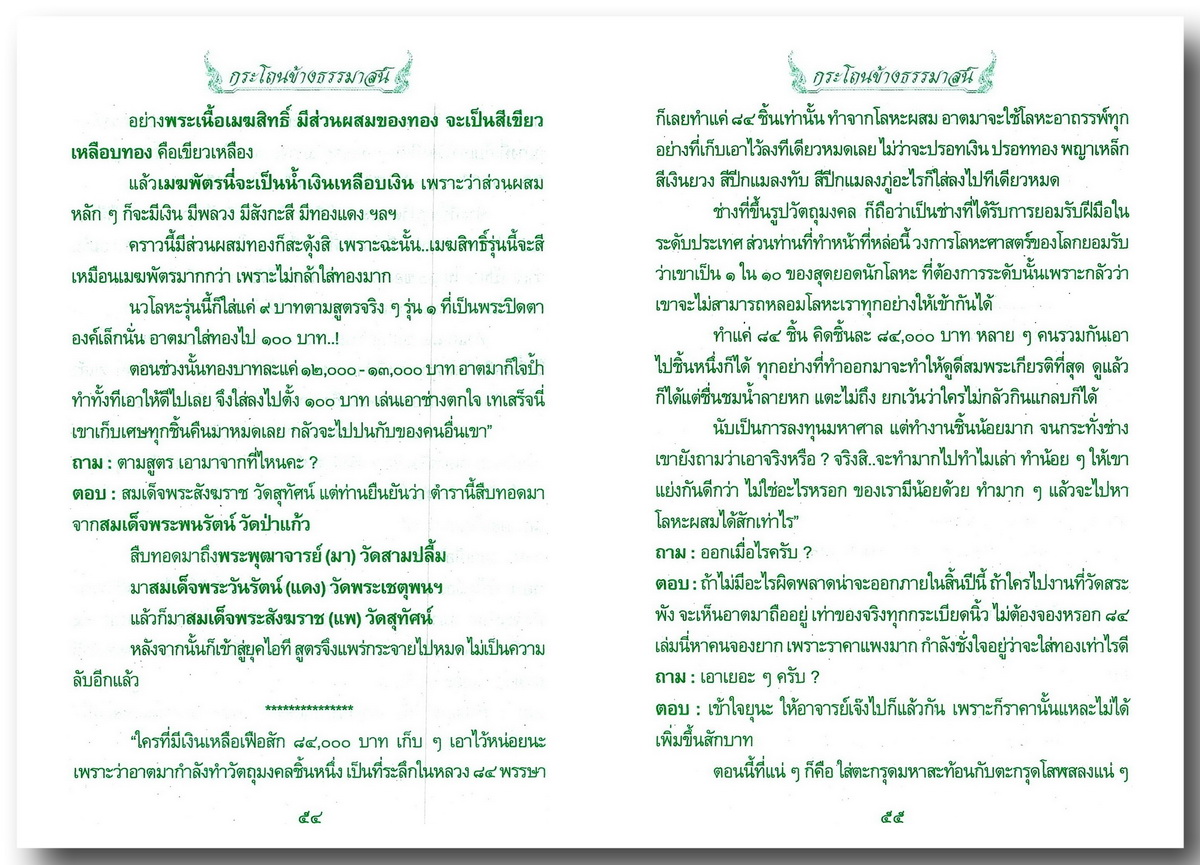 กระโถนข้างธรรมาสน์
อย่างพระเนื้อเมฆสิทธิ์ มีส่วนผสมของทอง จะเป็นสีเขียว
เหลือบทอง คือเขียวเหลือง
แล้วเมฆพัตรนี่จะเป็นน้ำเงินเหลือบเงิน เพราะว่าส่วนผสม
หลัก ๆ ก็จะมีเงิน มีพลวง มีสังกะสี มีทองแดง ฯลฯ
คราวนี้มีส่วนผสมทองก็สะดุ้งสิ เพราะฉะนั้น..เมฆสิทธิ์รุ่นนี้จะสี
เหมือนเมฆพัตรมากกว่า เพราะไม่กล้าใส่ทองมาก
นวโลหะรุ่นนี้ก็ใส่แค่ ๙ บาทตามสูตรจริง ๆ รุ่น ๑ ที่เป็นพระปิดตา
องค์เล็กนั่น อาตมาใส่ทองไป ๑๐๐ บาท..!
ตอนช่วงนั้นทองบาทละแค่ ๑๒,๐๐๐ - ๑๓,๐๐๐ บาท อาตมาก็ใจป้ำ
ทำทั้งทีเอาให้ดีไปเลย จึงใส่ลงไปตั้ง ๑๐๐ บาท เล่นเอาช่างตกใจ เทเสร็จนี่
เขาเก็บเศษทุกชิ้นคืนมาหมดเลย กลัวจะไปปนกับของคนอื่นเขา”
ถาม : ตามสูตร เอามาจากที่ไหนคะ ?
ตอบ : สมเด็จพระสังฆราช วัดสุทัศน์ แต่ท่านยืนยันว่า ตำรานี้สืบทอดมา
จากสมเด็จพระพนรัตน์ วัดป่าแก้ว
สืบทอดมาถึงพระพุฒาจารย์ (มา) วัดสามปลื้ม
มาสมเด็จพระวันรัตน์ (แดง) วัดพระเชตุพนฯ
แล้วก็มาสมเด็จพระสังฆราช (แพ) วัดสุทัศน์
หลังจากนั้นก็เข้าสู่ยุคไอที สูตรจึงแพร่กระจายไปหมด ไม่เป็นความ
ลับอีกแล้ว
***************
“ใครที่มีเงินเหลือเฟือสัก ๘๔,๐๐๐ บาท เก็บ ๆ เอาไว้หน่อยนะ
เพราะว่าอาตมากำลังทำวัตถุมงคลชิ้นหนึ่ง เป็นที่ระลึกในหลวง ๘๔ พรรษา
๕๔
กระโถนข้างธรรมาสน์
ก็เลยทำแค่ ๘๔ ชิ้นเท่านั้น ทำจากโลหะผสม อาตมาจะใช้โลหะอาถรรพ์ทุก
อย่างที่เก็บเอาไว้ลงทีเดียวหมดเลย ไม่ว่าจะปรอทเงิน ปรอททอง พญาเหล็ก
สีเงินยวง สีปีกแมลงทับ สีปีกแมลงภู่อะไรก็ใส่ลงไปทีเดียวหมด
ช่างที่ขึ้นรูปวัตถุมงคล ก็ถือว่าเป็นช่างที่ได้รับการยอมรับฝีมือใน
ระดับประเทศ ส่วนท่านที่ทำหน้าที่หล่อนี้ วงการโลหะศาสตร์ของโลกยอมรับ
ว่าเขาเป็น ๑ ใน ๑๐ ของสุดยอดนักโลหะ ที่ต้องการระดับนั้นเพราะกลัวว่า
เขาจะไม่สามารถหลอมโลหะเราทุกอย่างให้เข้ากันได้
ทำแค่ ๘๔ ชิ้น คิดชิ้นละ ๘๔,๐๐๐ บาท หลาย ๆ คนรวมกันเอา
ไปชิ้นหนึ่งก็ได้ ทุกอย่างที่ทำออกมาจะทำให้ดูดีสมพระเกียรติที่สุด ดูแล้ว
ก็ได้แต่ชื่นชมน้ำลายหก แตะไม่ถึง ยกเว้นว่าใครไม่กลัวกินแกลบก็ได้
นับเป็นการลงทุนมหาศาล แต่ทำงานชิ้นน้อยมาก จนกระทั่งช่าง
เขายังถามว่าเอาจริงหรือ ? จริงสิ..จะทำมากไปทำไมเล่า ทำน้อย ๆ ให้เขา
แย่งกันดีกว่า ไม่ใช่อะไรหรอก ของเรามีน้อยด้วย ทำมาก ๆ แล้วจะไปหา
โลหะผสมได้สักเท่าไร”
ถาม : ออกเมื่อไรครับ ?
ตอบ : ถ้าไม่มีอะไรผิดพลาดน่าจะออกภายในสิ้นปีนี้ ถ้าใครไปงานที่วัดสระ
พัง จะเห็นอาตมาถืออยู่ เท่าของจริงทุกกระเบียดนิ้ว ไม่ต้องจองหรอก ๘๔
เล่มนี่หาคนจองยาก เพราะราคาแพงมาก กำลังชั่งใจอยู่ว่าจะใส่ทองเท่าไรดี
ถาม : เอาเยอะ ๆ ครับ ?
ตอบ : เข้าใจยุนะ ให้อาจารย์เจ๊งไปก็แล้วกัน เพราะก็ราคานั้นแหละไม่ได้
เพิ่มขึ้นสักบาท
ตอนนี้ที่แน่ ๆ ก็คือ ใส่ตะกรุดมหาสะท้อนกับตะกรุดโสฬสลงแน่ ๆ
๕๕